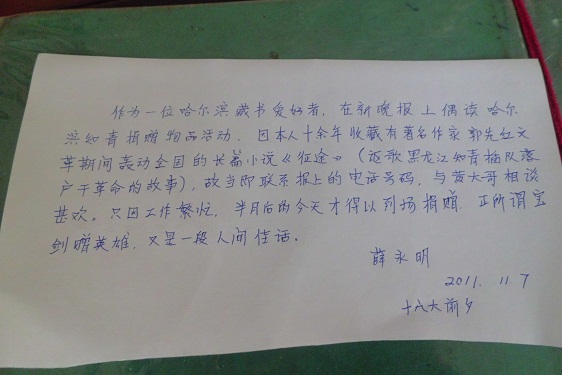 作为一位哈尔滨藏书爱好者，在新晚报上偶读哈尔
滨知青捐赠物品活动，因本人十余年收藏有著名作家郭先红文
革期间轰动全国的长篇小说《征途》（讴歌黑龙江知青插队落
户干革命的故事），故当即联系报上的电话号码，与黄大哥相谈
甚欢。只因工作繁忙，半月后的今天才得以到场捐赠，正所谓宝
剑赠英雄，又是一段人间佳话。
薛永明
2011.11.7
十八大前夕